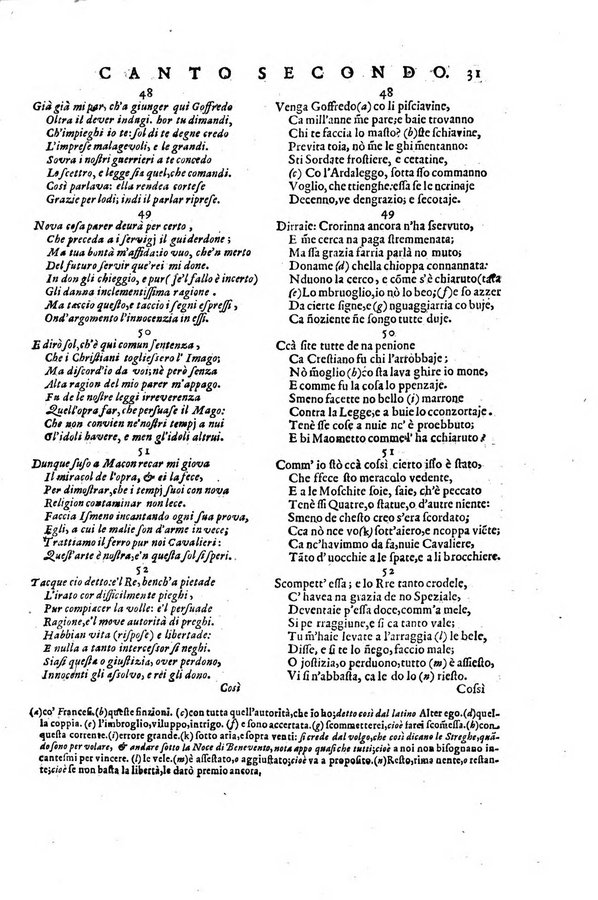 CANTO SECONDO. 31
48
Già già mi par, ch'a giunger qui Goffredo
Oltra il dever indugi. hor tu dimandi,
Ch'impieghi io te: sol di te degne credo
L'imprese malagevoli, e le grandi.
Sovra i nostri guerrieri a te concedo
Lo scettro, e legge sia quel, che comandi.
Così parlava: ella rendea cortese
Grazie per lodi; indi il parlar riprese.
49
Nova cosa parer deurà per certo,
Che preceda a i servigj il guiderdone;
Ma tua bontà m'affida: io vuo, che'n merto
Del futuro servir que'rei mi done.
In don gli chieggio, e pur (se'l fallo è incerto)
Gli danna inclementissima ragione.
Ma taccio questo, e taccio i segni espressi,
Ond'argomento l'innocenzia in essi.
50
E dirò sol, ch'è quì comun sentenza,
Che i Christiani togliessero l'Imago;
Ma discord'io da voi; nè però senza
Alta ragion del mio parer m'appago.
Fu de le nostre leggi irreverenza
Quell'opra far, che persuase il Mago:
Che non convien ne'nostri tempj a nui
Gl'idoli havere, e men gl'idoli altrui.
51
Dunque suso a Macon recar mi giova
Il miracol de l'opra, & ei la fece,
Per dimostrar, che i tempj suoi con nova
Religion contaminar non lece.
Faccia Ismeno incantando ogni sua prova,
Egli, a cui le malie son d'arme in vece;
Trattiamo il ferro pur noi Cavalieri:
Quest'arte è nostra, e'n questa sol si speri.
52
Tacque cio detto: e'l Re, bench'a pietade
L'irato cor difficilmente pieghi,
Pur compiacer la volle: e'l persuade
Ragione, e'l move autorità di preghi.
Habbian vita (rispose) e libertade:
E nulla a tanto intercessor si neghi.
Siasi questa o giustizia, over perdono,
Innocenti gli assolvo, e rei gli dono.
Così
48
Venga Goffredo (a) co li pisciavine,
Ca mill'anne me pare e baie trovanno
Chi te faccia lo masto? (b) ste schiavine,
Previta toia, nò m̃e le ghimentanno:
Sti Sordate frostiere, e cetatine,
(c) Co l'Ardaleggo, sotta sso commanno
Voglio, che ttienghe: essa se 'ncrinaje
Decenno, ve dengrazio; e secotaje.
49
Dirraie: Crorinna ancora n'ha sservuto,
E m̃e cerca na paga stremmenata;
Ma ssa grazia farria parlà no muto;
Doname (d) chella chioppa connannata:
Nduono la cerco, e cõme s'è chiaruto (tata
(e) Lo mbruoglio, io nò lo beo; (f) e so azzer
Da cierte signe, e (g) nguaggiarria co buje,
Ca ñoziente ñe songo tutte duje.
50
Ccà site tutte de na penione
Ca Crestiano fu chi l'arrobbaje:
Nò m̃oglio (h) cò sta lava ghire io mone,
E comme fu la cosa lo ppenzaje.
Smeno facette no bello (i) marrone
Contra la Legge; e a buie lo cconzortaje.
Tenè sse cose a nuie nc' è proebbuto;
E bi Maometto comme l' ha cchiaruto!
51
Comm' io stò ccà cossì cierto isso è stato,
Che ffece sto meracolo vedente,
E a le Moschite soie, saie, ch'è peccato
Tenè sti Quatro, o statue, o d'autre niente:
Smeno de chesto creo s'era scordato;
Cca nò nce vo (k) sott'aiero, e ncoppa viẽte;
Ca nc'havimmo da fa, nuie Cavaliere,
Tãto d'uocchie a le spate, e a li brocchiere.
52
Scompett' essa; e lo Rre tanto crodele,
C' havea na grazia de no Speziale,
Deventaie p'essa doce, comm'a mele,
Si pe rraggiune, e sì ca tanto vale;
Tu m'haie levate a l'arraggia (l) le bele,
Disse, e sì te lo ñego, faccio male;
O jostizia, o perduono, tutto (m) è assiesto,
Vi si n'abbasta, ca le do lo (n) riesto.
Cossì
(a) co' Francesi. (b) queste finzioni. (c) con tutta quell'autorità, che io ho; detto così dal latino Alter ego. (d) quel-
la coppia. (e) l'imbroglio, viluppo, intrigo. (f) e sono accertata. (g) scommetterei, cioè farei scommessa. (h) con
questa corrente. (i) errore grande. (k) sotto aria, e sopra venti: si crede dal volgo, che così dicano le Streghe, quã-
do sono per volare, & andare sotto la Noce di Benevento, nota appo quasi che tutti; cioè a noi non bisognano in-
cantesmi per vincere. (l) le vele. (m) è assestato, o aggiustato; cioè va a proposito. (n) Resto, rimanente, o restan-
te; cioè se non basta la libertà, le darò premio ancora,